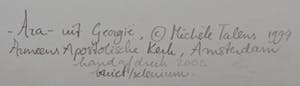 - Ara - uit Georgië, © Michèle Talens 1999
Armeens Apostolische Kerk, Amsterdam
handafdruk 2002
bariet/selenium